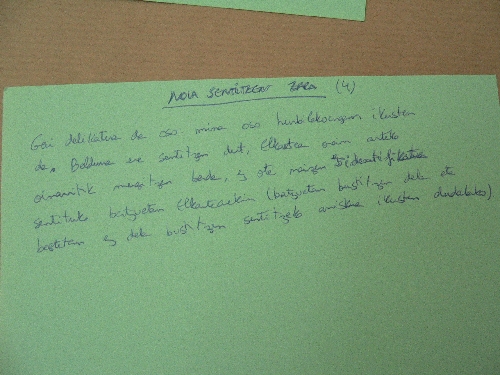 NOLA SENTITZEN ZARA (4)
Gai delikatua da oso, mina oso hurbilekoengan ikusten
da. Beldurra ere sentitzen dut, Elkartea orain arteko
dinamitik mugitzen bada, ez ote naizen identifikatua
sentituko batzuetan Elkartearekin (batzuetan bustitzen dela eta
bestetan ez dela bustitzen sentitzeko arriskua ikusten dudalako)